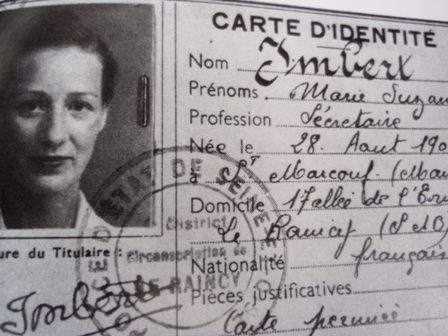 CARTE D'IDENTITÉ
Nom Imbert
Prénoms Marie Suzan
Profession Secrétaire
Née le 28 Aout 190
à St Marcouf (Man
Domicile 17 allée de l'Erm
Le Raincy (S et O)
Nationalité français
Pièces justificatives
Carte périmée
ure du Titulaire :
Imbert
ÉTAT DE SEINE
District
Circonscription de
LE RAINCY